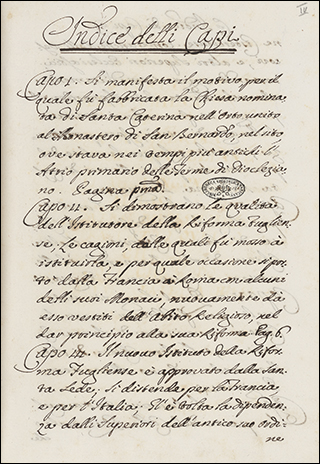 IV
Indice delli Capi.
Capo I. Si manifesta il motivo per il
quale fù fabbricata la Chiesa nomina
ta di Santa Caterina nell'Orto unito
al Monastero di San Bernardo, nel sito
ove stava nei tempi più antichi l'
Atrio primario delle Terme di Diocleziа
no. Pagina prima.
Capo II. Si dimostrano le qualità
dell'Istitutore della Riforma Fuglien
se. Le cagioni, dalle quali fu mosso à
istituirla e per quale occasione si por
tò dalla Francia à Roma con alcuni
detti suoi Monaci, nuovamente da
esso vestiti dell'Abito Relegioso, nel
dar principio alla sua Riforma Pag. 6.
Capo III. Il nuovo Istituto della Rifor
ma Fugliense è approvato dalla San
ta Sede, Si distende per la Francia
e per l'Italia, Gl'è tolta la dipenden
za dalli Superiori dell'antico suo Ordi
ne